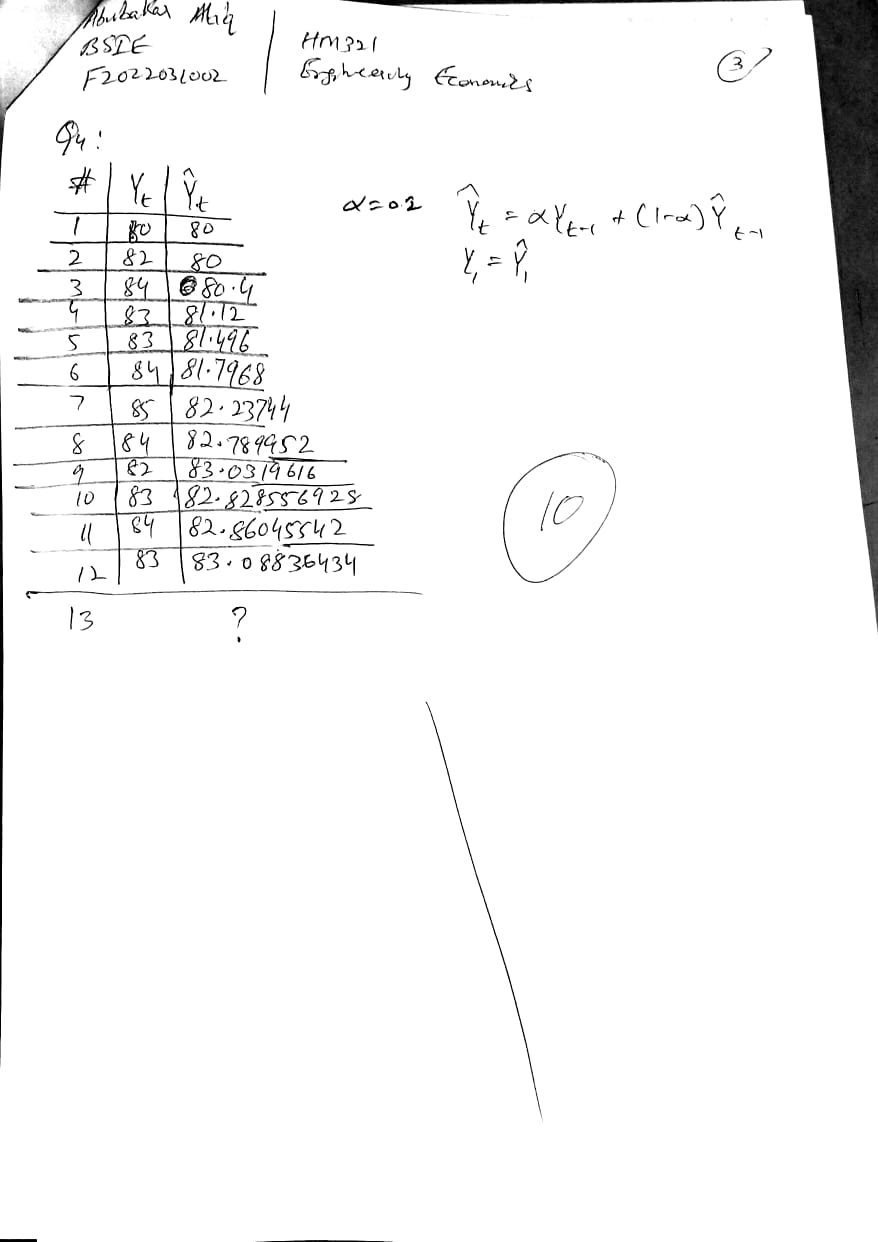 Abubakar Atiq
BSIE
F2022031002
HM321
Engineering Economics
3
Q4:
# Yt Ŷt
α=0.2 Ŷt = αYt-1 + (1-α)Ŷt-1
Y1 = Ŷ1
1 80 80
2 82 80
3 84 80.4
4 83 81.12
5 83 81.496
6 84 81.7968
7 85 82.23744
8 84 82.789952
9 82 83.0319616
10 83 82.828556928
11 84 82.86045542
12 83 83.08836434
10
13 ?